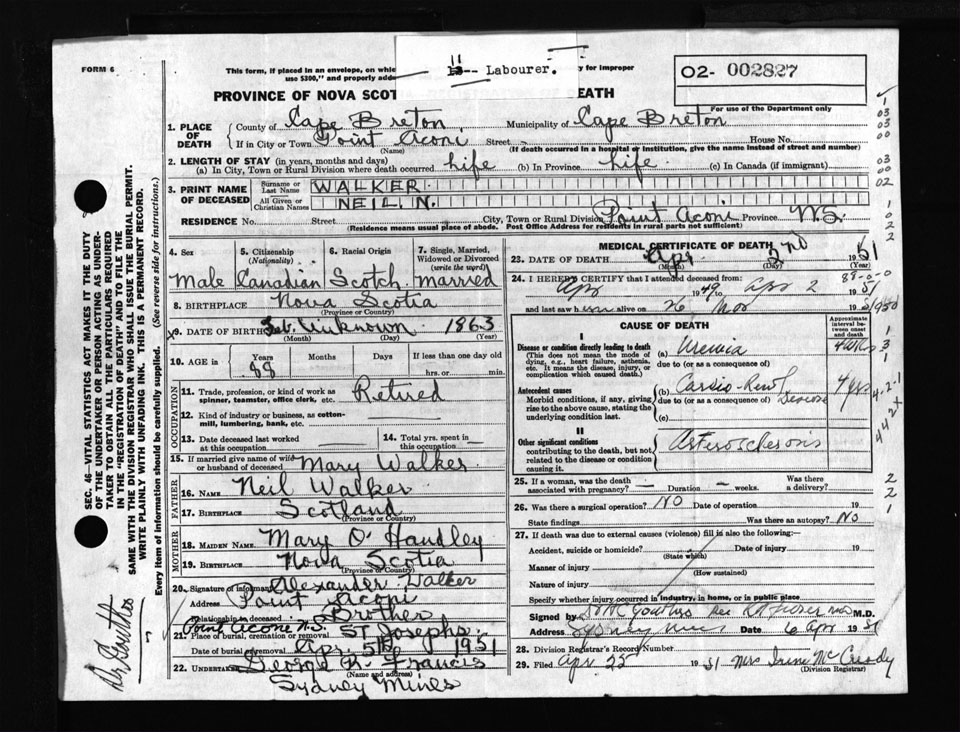 FORM 6
This form, if placed in an envelope, on whic
use $300," and properly addr
11
-- Labourer.
y for improper
02- 002827
For use of the Department only
PROVINCE OF NOVA SCOT
EATH
1. PLACE OF DEATH
County of Cape Breton Municipality of Cape Breton
If in City or Town Point Aconi Street - House No.
(Name) (If death occurred in a hospital or institution, give the name instead of street and number)
2. LENGTH OF STAY (in years, months and days)
(a) In City, Town or Rural Division where death occurred life (b) In Province life (c) In Canada (if immigrant)
3. PRINT NAME OF DECEASED
Surname or Last Name WALKER
All Given or Christian Names NEIL. N.
RESIDENCE No. Street City, Town or Rural Division Point Aconi Province N.S.
(Residence means usual place of abode. Post Office Address for residents in rural parts not sufficient)
4. Sex Male
5. Citizenship (Nationality) Canadian
6. Racial Origin Scotch
7. Single, Married, Widowed or Divorced (write the word) married
8. BIRTHPLACE Nova Scotia
(Province or Country)
9. DATE OF BIRTH Unknown 1863
(Month) (Day) (Year)
10. AGE in Years 88 Months Days If less than one day old
hrs. or min.
OCCUPATION
11. Trade, profession, or kind of work as spinner, teamster, office clerk, etc. Retired
12. Kind of industry or business, as cotton-mill, lumbering, bank, etc.
13. Date deceased last worked at this occupation
14. Total yrs. spent in this occupation
15. If married give name of wife or husband of deceased Mary Walker
FATHER
16. NAME Neil Walker
17. BIRTHPLACE Scotland
(Province or Country)
MOTHER
18. MAIDEN NAME Mary O'Handley
19. BIRTHPLACE Nova Scotia
(Province or Country)
20. Signature of informant Alexander Walker
Address Point Aconi
Relationship to deceased Brother
Point Aconi N.S.
21. Place of burial, cremation or removal St Josephs.
Date of burial, cremation or removal Apr. 5th 1951
22. UNDERTAKER George R. Francis
(Name and address)
Sydney Mines
MEDICAL CERTIFICATE OF DEATH
23. DATE OF DEATH Apr. 2nd 1951
(Month) (Day) (Year)
88-0-0
24. I HEREBY CERTIFY that I attended deceased from
Apr 1949 to Apr 2 1951
and last saw him alive on 26 19
CAUSE OF DEATH
Approximate interval between onset and death
I
Disease or condition directly leading to death (a) Uremia
(This does not mean the mode of dying, e.g., heart failure, asthenia, etc. It means the disease, injury, or complication which caused death.)
due to (or as a consequence of)
Antecedent causes (b) Cardio-Renal Disease 4 yrs
Morbid conditions, if any, giving rise to the above cause, stating the underlying condition last.
due to (or as a consequence of)
(c)
II
Other significant conditions
contributing to the death, but not related to the disease or condition causing it.
25. If a woman, was the death associated with pregnancy? — Duration — weeks. Was there a delivery?
26. Was there a surgical operation? NO Date of operation
State findings Was there an autopsy? No
27. If death was due to external causes (violence) fill in also the following:
Accident, suicide or homicide? Date of injury
(State which)
Manner of injury
(How sustained)
Nature of injury
Specify whether injury occurred in industry, in home, or in public place
Signed by M.D.
Address Sydney Mines Date 6 Apr 1951
28. Division Registrar's Record Number
29. Filed Apr 25 1951 Mrs Irene McCready
(Division Registrar)
SEC. 46—VITAL STATISTICS ACT MAKES IT THE DUTY
OF THE UNDERTAKER OR PERSON ACTING AS UNDER-
TAKER TO OBTAIN ALL THE PARTICULARS REQUIRED
IN THE "REGISTRATION OF DEATH" AND TO FILE THE
SAME WITH THE DIVISION REGISTRAR WHO SHALL ISSUE THE BURIAL PERMIT.
WRITE PLAINLY WITH UNFADING INK. THIS IS A PERMANENT RECORD.
Every item of information should be carefully supplied. (See reverse side for instructions.)